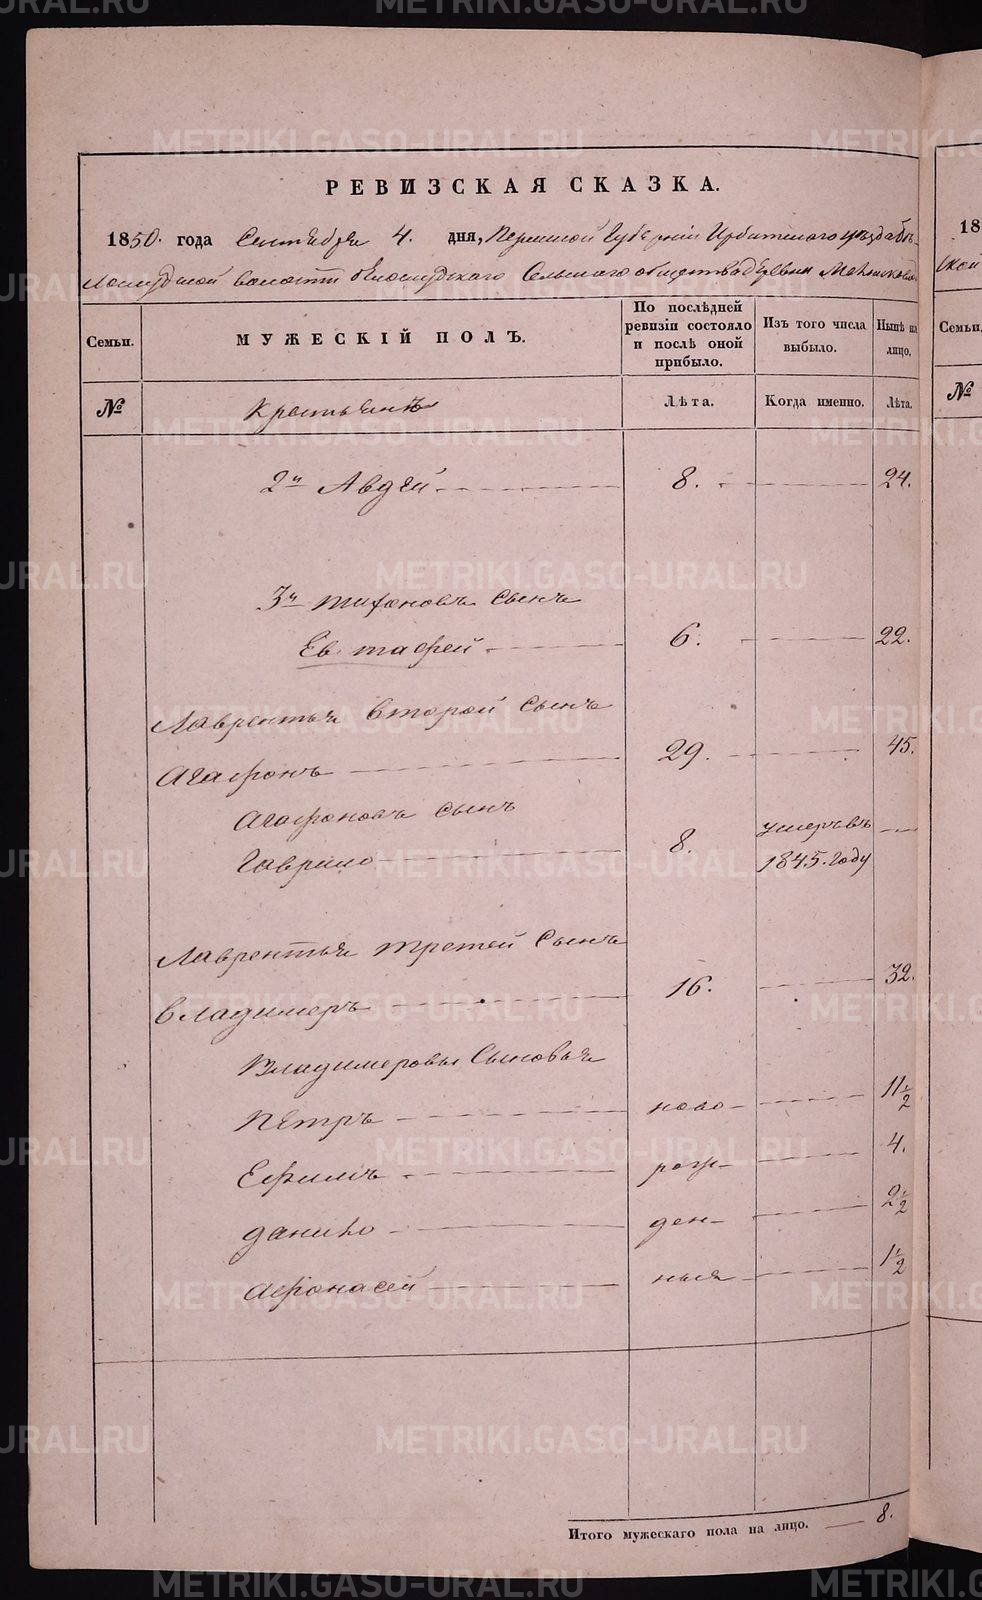 METRIKI.GASO-URAL.RU
РЕВИЗСКАЯ СКАЗКА.
1850. года Сентября 4. дня, Пермской Губерніи Ирбитского уѣзда Бѣ-
лослудской волости Бѣлослудского Сельского общества деревни
Семьи. МУЖЕСКІЙ ПОЛЪ. По послѣдней ревизіи состояло и послѣ оной прибыло. Изъ того числа выбыло. Нынѣ на лицо.
№ Крестьянѣ Лѣта. Когда именно. Лѣта.
2й Авдей 8. 24.
3й Тихоновъ Сынъ
Евстафей 6. 22.
Лаврентья второй Сынъ
Агафонъ 29. 45.
Агафоновъ сынъ
Гаврило 8. умеръ въ 1845. году
Лаврентья третей Сынъ
Владимеръ 16. 32.
Владимеровы Сыновья
Петръ ново 11½
Ефимъ рож- 4.
Данило ден- 2½
Афонасей ные 1½
Итого мужескаго пола на лицо. 8.
18
ской
Семьи.
№